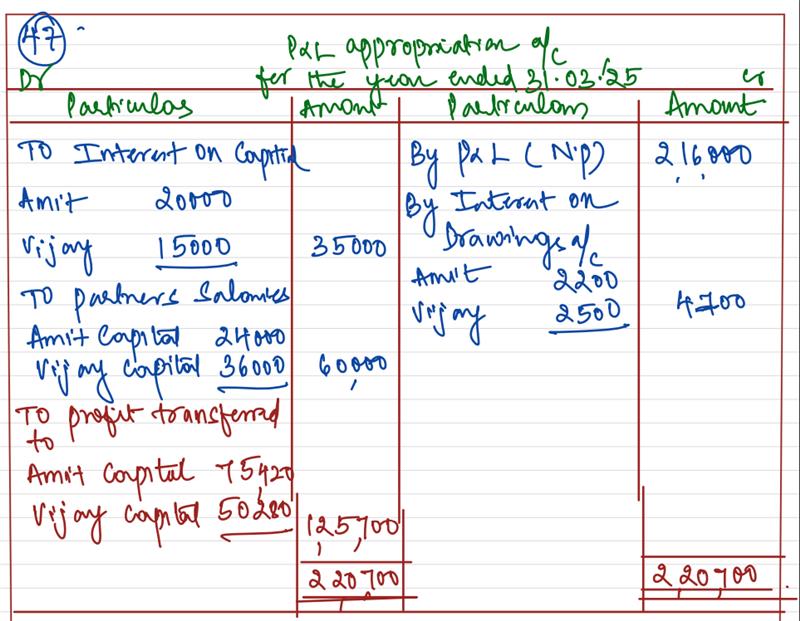 47
P&L appropriation a/c
Dr for the year ended 31.03.25 cr
Particulas Amount Particulars Amount
To Interest on Capital By P&L (N.p) 216,000
Amit 20000 By Interest on
Vijay 15000 35000 Drawings a/c
Amit 2200
To partners Salaries Vijay 2500 4700
Amit Capital 24000
Vijay Capital 36000 60,000
To profit transferred
to
Amit Capital 75,420
Vijay Capital 50,280 1,25,700
2,20,700 2,20,700